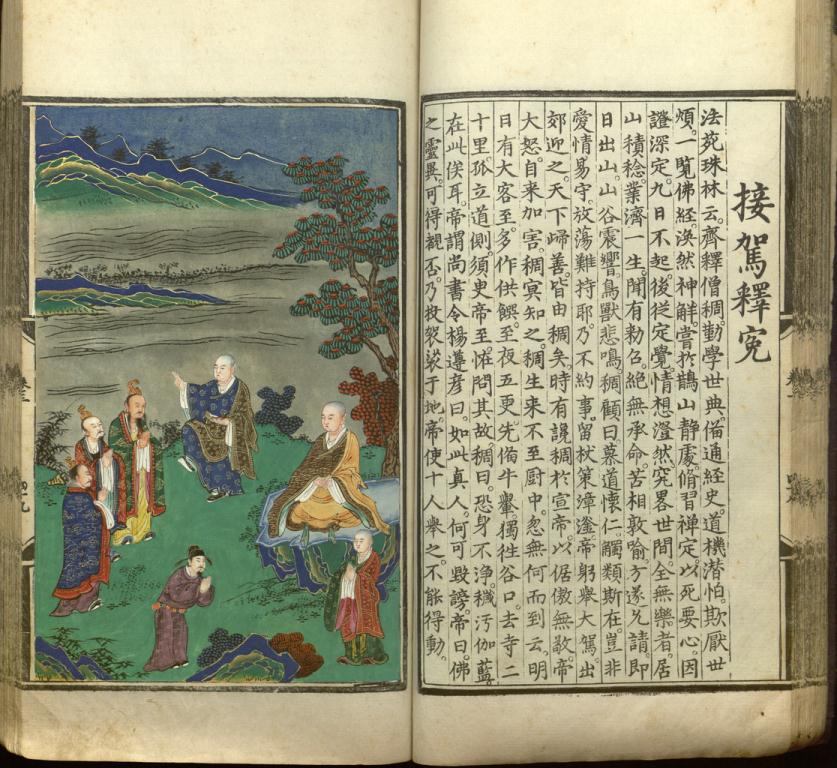 接駕釋冤
法苑珠林云。齊釋僧稠。勤學世典。備通經史。道機潛怕。欺厭世
煩。一覽佛經。渙然神解。嘗於鵲山靜處。脩習禪定。以死要心。因
證深定。九日不起。後從定覺。情想澄然。究畧世間。全無樂者。居
山積稔。業濟一生。聞有勑召。絕無承命。苦相敦喻。方遂允請。即
日出山。山谷震響。鳥獸悲鳴。稠顧曰。慕道懷仁。觸類斯在。豈非
愛情易守。放蕩難持耶。乃不約事。留杖策漳滏。帝躬舉大駕。出
郊迎之。天下歸善。皆由稠矣。時有讒稠於宣帝。以倨傲無敬。帝
大怒。自来加害。稠冥知之。稠生来不至厨中。忽無何而到云。明
日有大客至。多作供饌。至夜五更。先備牛轝。獨徃谷口。去寺二
十里。孤立道側。須臾帝至。恠問其故。稠曰。恐身不淨。穢汚伽藍。
在此俟耳。帝謂尚書令楊遵彥曰。如此真人。何可毀謗。帝曰。佛
之靈異。可得覩否。乃投袈裟于地。帝使十人舉之。不能得動。